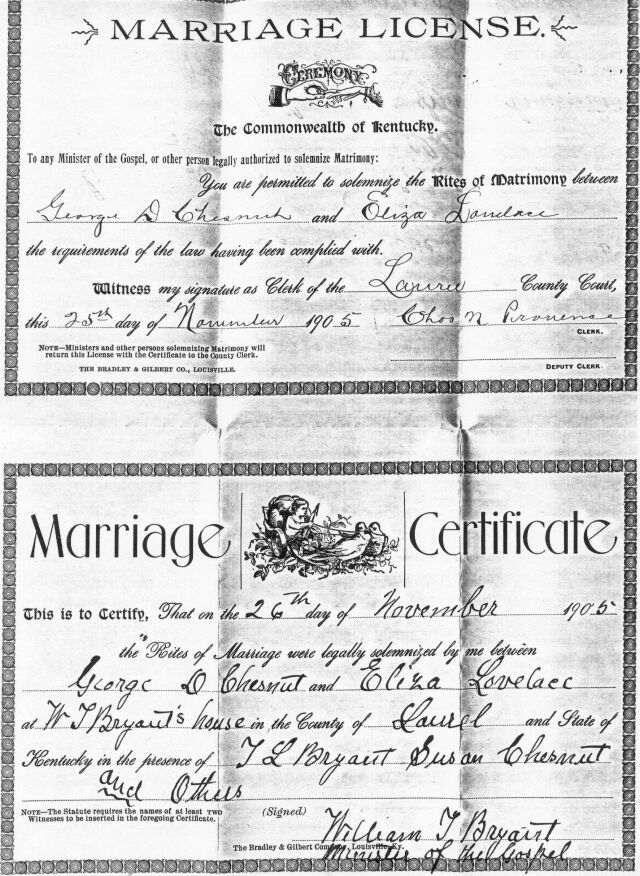 MARRIAGE LICENSE.
CEREMONY
The Commonwealth of Kentucky.
To any Minister of the Gospel, or other person legally authorized to solemnize Matrimony:
You are permitted to solemnize the Rites of Matrimony between
George D Chesnut and Eliza Lovelace
the requirements of the law having been complied with.
Witness my signature as Clerk of the Laurel County Court,
this 25th day of November 1905 Chas N
CLERK.
NOTE—Ministers and other persons solemnizing Matrimony will
return this License with the Certificate to the County Clerk.
DEPUTY CLERK.
THE BRADLEY & GILBERT CO., LOUISVILLE.
Marriage Certificate
This is to Certify, That on the 26th day of November 1905
the Rites of Marriage were legally solemnized by me between
George D Chesnut and Eliza Lovelace
at W T Bryant's house in the County of Laurel and State of
Kentucky in the presence of T L Bryant Susan Chesnut
and Others
NOTE—The Statute requires the names of at least TWO
Witnesses to be inserted in the foregoing Certificate.
(Signed) William T Bryant
The Bradley & Gilbert Company, Louisville, Ky.
Minister of the Gospel